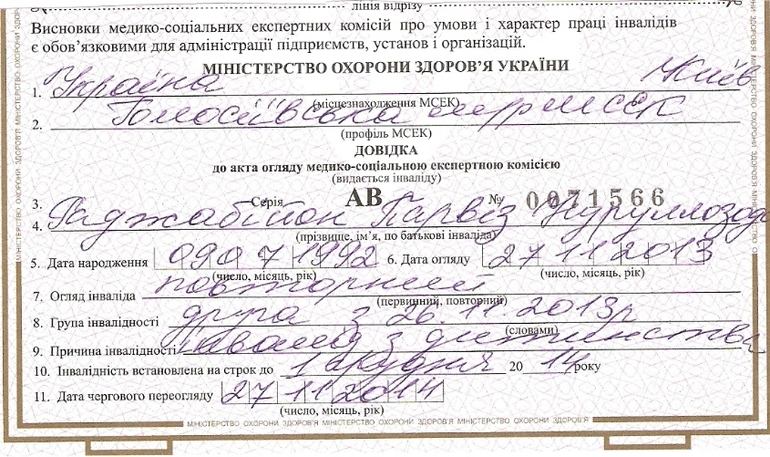 лінія відрізу
Висновки медико-соціальних експертних комісій про умови і характер праці інвалідів
є обов'язковими для адміністрації підприємств, установ і організацій.
МІНІСТЕРСТВО ОХОРОНИ ЗДОРОВ'Я УКРАЇНИ
1. Україна м.Київ
(місцезнаходження МСЕК)
2. Голосіївська МСЕК
(профіль МСЕК)
ДОВІДКА
до акта огляду медико-соціальною експертною комісією
(видається інваліду)
3. Серія АВ № 0071566
4. Раджабійон Парвіз Нуруллозода
(прізвище, ім'я, по батькові інваліда)
5. Дата народження 09 07 1992 6. Дата огляду 27 11 2013
(число, місяць, рік) (число, місяць, рік)
7. Огляд інваліда повторний
(первинний, повторний)
8. Група інвалідності друга з 26.11.2013р
(словами)
9. Причина інвалідності інвалід з дитинства
10. Інвалідність встановлена на строк до 1 грудня 2014 року
11. Дата чергового переогляду 27 11 2014
(число, місяць, рік)
МІНІСТЕРСТВО ОХОРОНИ ЗДОРОВ'Я МІНІСТЕРСТВО ОХОРОНИ ЗДОРОВ'Я МІНІСТЕРСТВО ОХОРОНИ ЗДОРОВ'Я